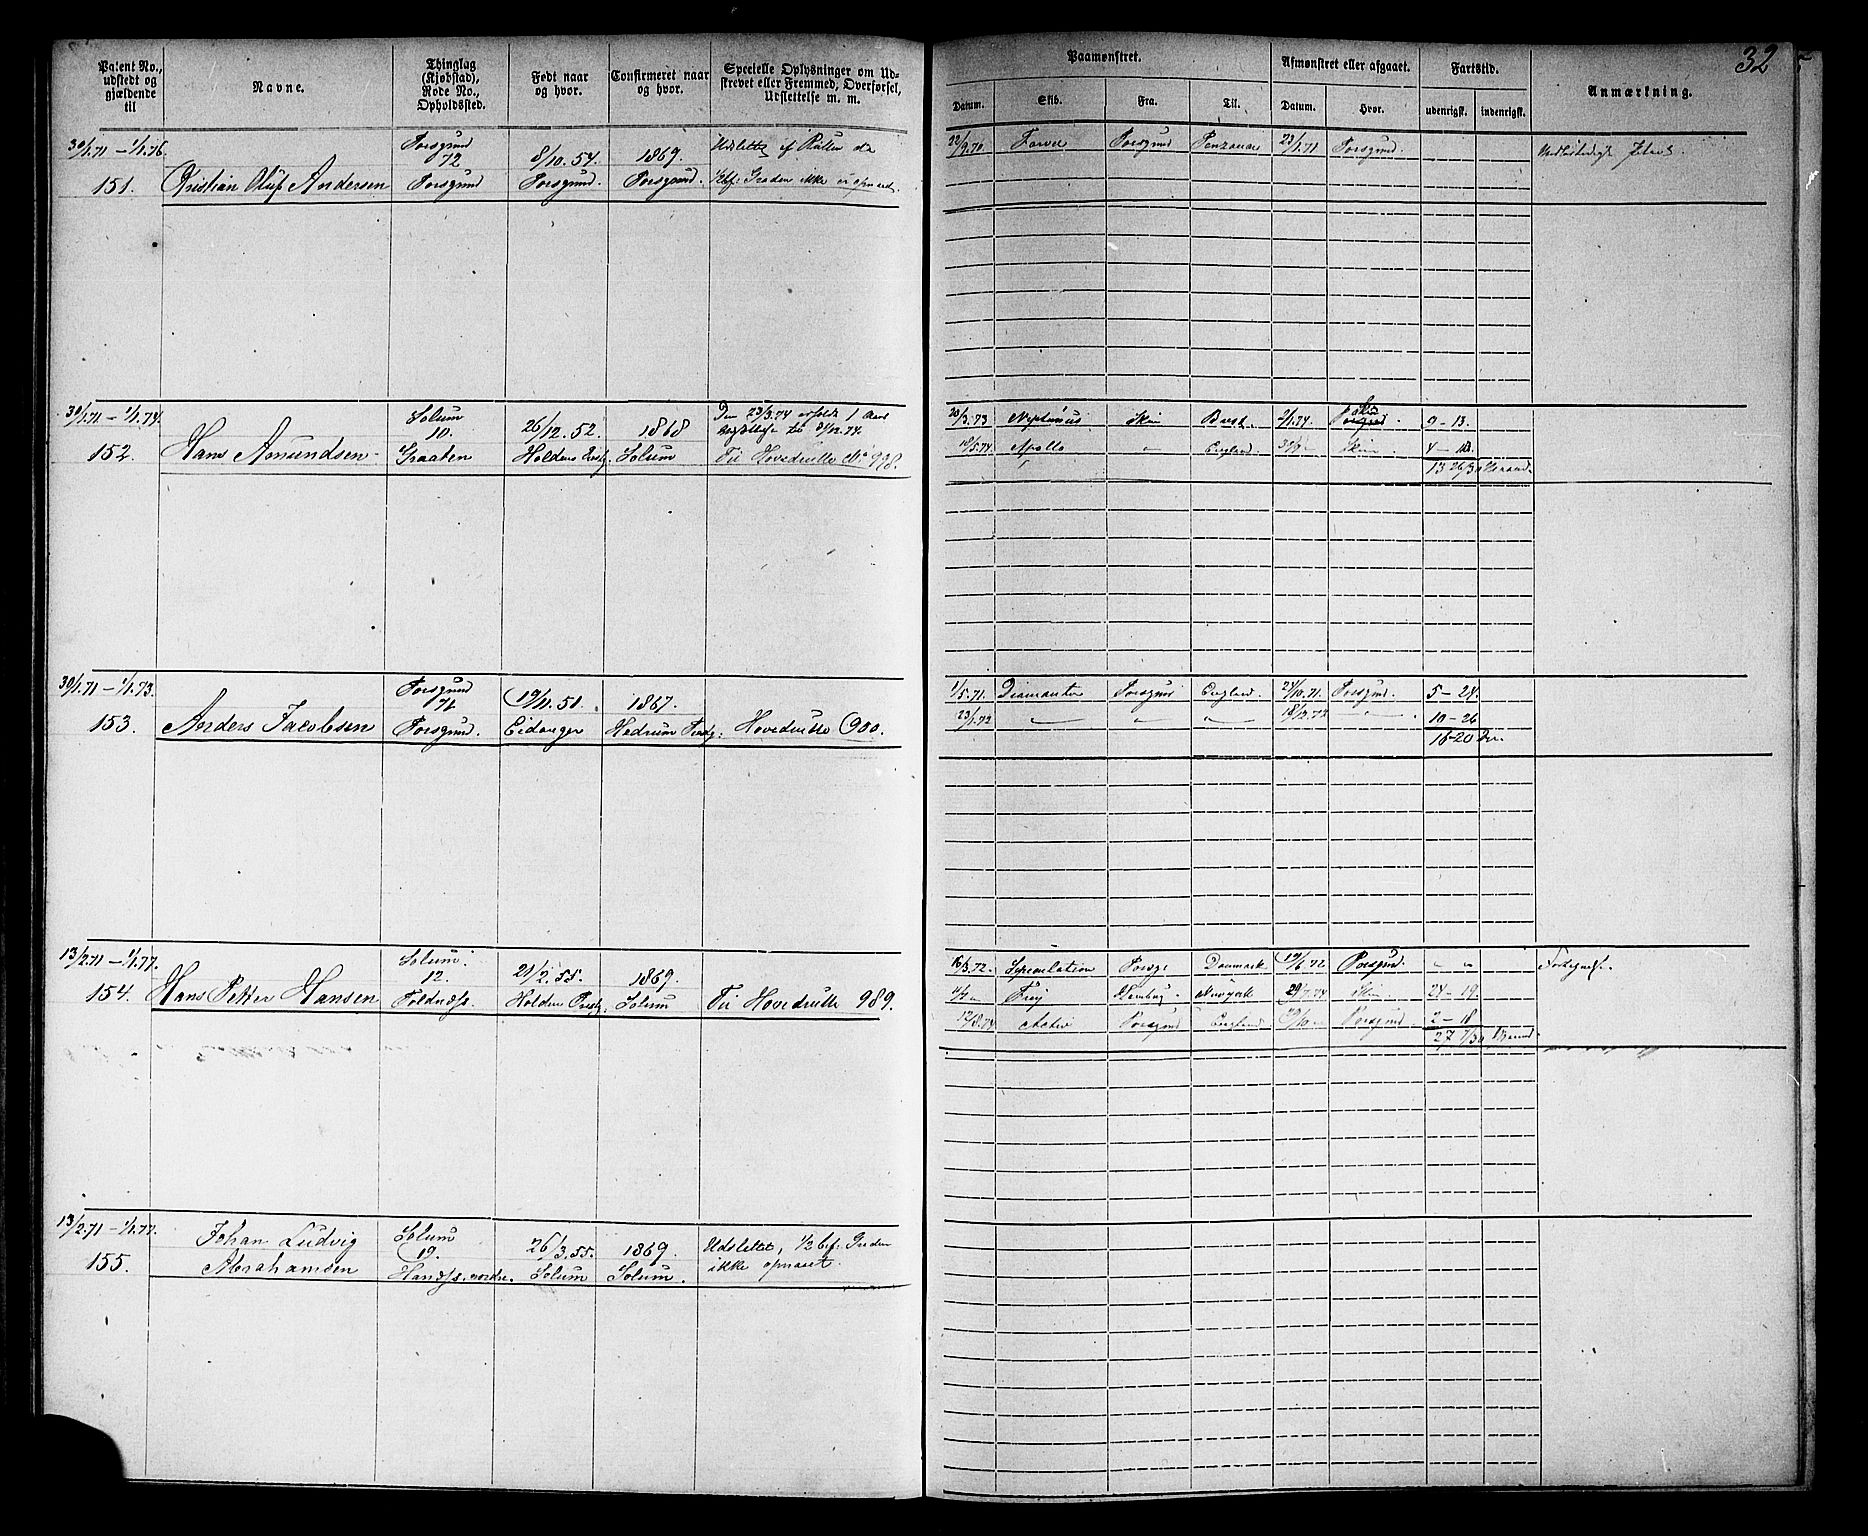 32
Patent No., udstedt og gjældende til
Navne.
Thinglag (Kjøbstad), Rode No., Opholdssted.
Født naar og hvor.
Confirmeret naar og hvor.
Specielle Oplysninger om Udskrevet eller Fremmed, Overførsel, Udslettelse m. m.
Paamønstret.
Datum. Skib. Fra. Til.
Afmønstret eller afgaaet.
Datum. Hvor.
Fartstid.
udenrigsk. indenrigsk.
Anmærkning.
30/1.71 – 1/1.76.
151.
Christian Oluf Andersen
Porsgrund
72
Porsgrund
8/10.54.
Porsgrund.
1869.
Porsgrund.
Udslettet af Rullen da
1/2 bef: Graden ikke er opnaaet.
22/9.70. Farvel Porsgrund Penzance 23/1.71 Porsgrund.
30/1.71 – 1/1.74.
152.
Hans Amundsen
Solum
10.
Graaten
26/12.52.
Holden Prstg.
1868
Solum
Den 23/3.74 1 Aars
til 31/12.74.
Til Hovedrulle No 978.
20/3.73 Neptunus Skien Brest 2/1.74. Skien 9–13.
18/5.74 Apollo – England Skien 4–13
13 26/30 Maaned.
30/1.71 – 1/1.73.
153.
Anders Jacobsen
Porsgrund
71
Porsgrund.
19/11.51.
Eidanger
1867.
Hedrum Prstg.
Hovedrulle 900.
1/5.71. Diamanten Porsgrund England 24/10.71. Porsgrund. 5–24.
23/1.72 – – – 18/12.72 – 10–26
16–20
13/2.71 – 1/1.77.
154.
Hans Petter Hansen
Solum
12.
Toldnæs.
21/2.55.
Holden Prstg.
1869.
Solum
Til Hovedrulle 989.
16/3.72. Speculation Porsgr Danmark 19/6.72 Porsgrund. – –
Frey Newyork 29/7.74 Skien. 24–19.
12/8.74 Activ Porsgrund England Porsgrund 2–18
27 7/30 Maaned
13/2.71 – 1/1.77.
155.
Johan Ludvig
Abrahamsen
Solum
19.
Hanæs. nordre.
26/3.55.
Solum
1869.
Solum.
Udslettet, 1/2 bef: Graden
ikke opnaaet.